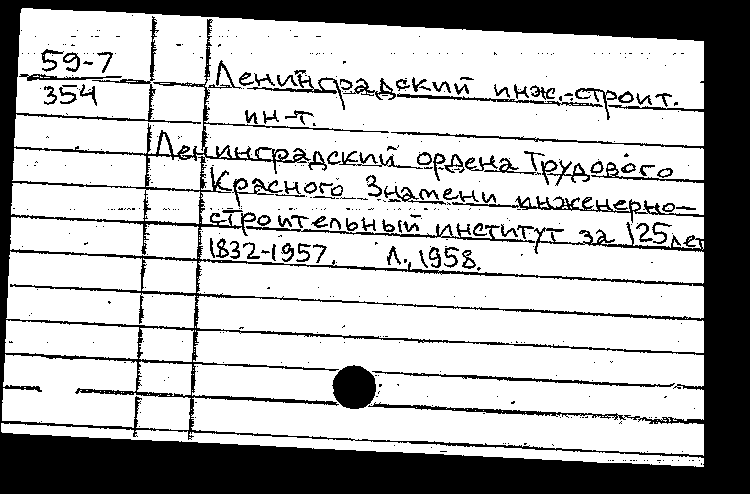 59-7
354
Ленинградский инж.-строит.
ин-т.
Ленинградский ордена Трудового
Красного Знамени инженерно-
строительный институт за 125 лет
1832-1957. Л., 1958.